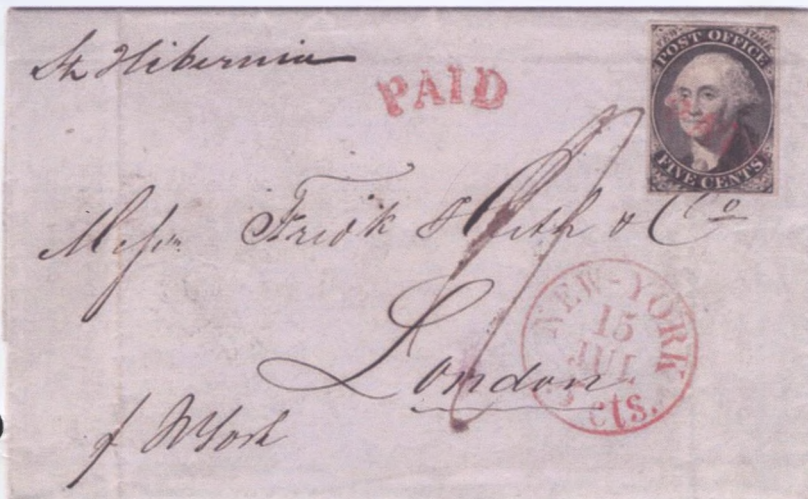 Hibernia
PAID
POST OFFICE
FIVE CENTS
Messrs Fredk Huth & Co
London
NEW-YORK
15
JUL
5 cts.
p NYork